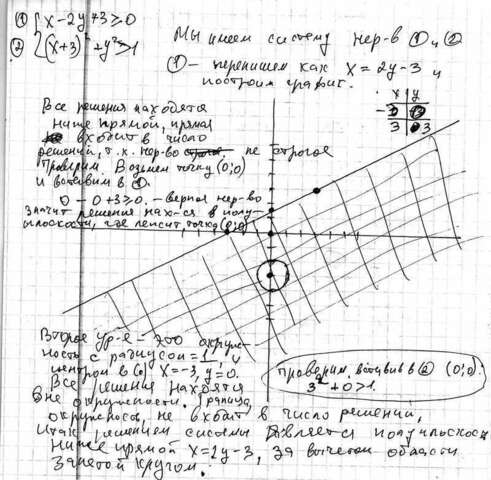 ① { x - 2y + 3 ⩾ 0
② { (x+3)² + y² > 1
Мы имеем систему нер-в ① и ②
① - перепишем как x = 2y - 3 и
построим график.
x | y
-3 | 0
3 | 3
Все решения находятся
ниже прямой, прямая
входит в число
решений, т.к. нер-во не строгое
Проверим. Возьмём точку (0;0)
и вставим в ①.
0 - 0 + 3 ⩾ 0. - верное нер-во
Значит решения нах-ся в полу-
плоскости, где лежит точка (0;0)
Второе ур-е - это окруж-
ность с радиусом = 1, и
центром в x = -3, y = 0.
Все решения находятся
вне окружности. Граница
окружности не входит в число решений,
Проверим, вставив в ② (0;0)
3² + 0 > 1.
Итак решением системы является полуплоскость
ниже прямой x = 2y - 3, за вычетом области
занятой кругом.